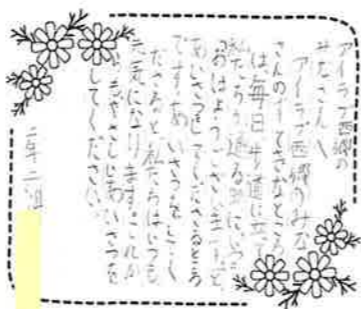 アイラブ西郷の
みなさんへ
アイラブ西郷のみな
さんのすてきなところ
は毎日歩道に立って
私たちが通る時にいつも
「おはようございます」と
あいさつしてくださるところ
です。あいさつをしてく
ださると、私たちはいつも
元気になります。これか
らもやさしいあいさつを
してください。
二年二組